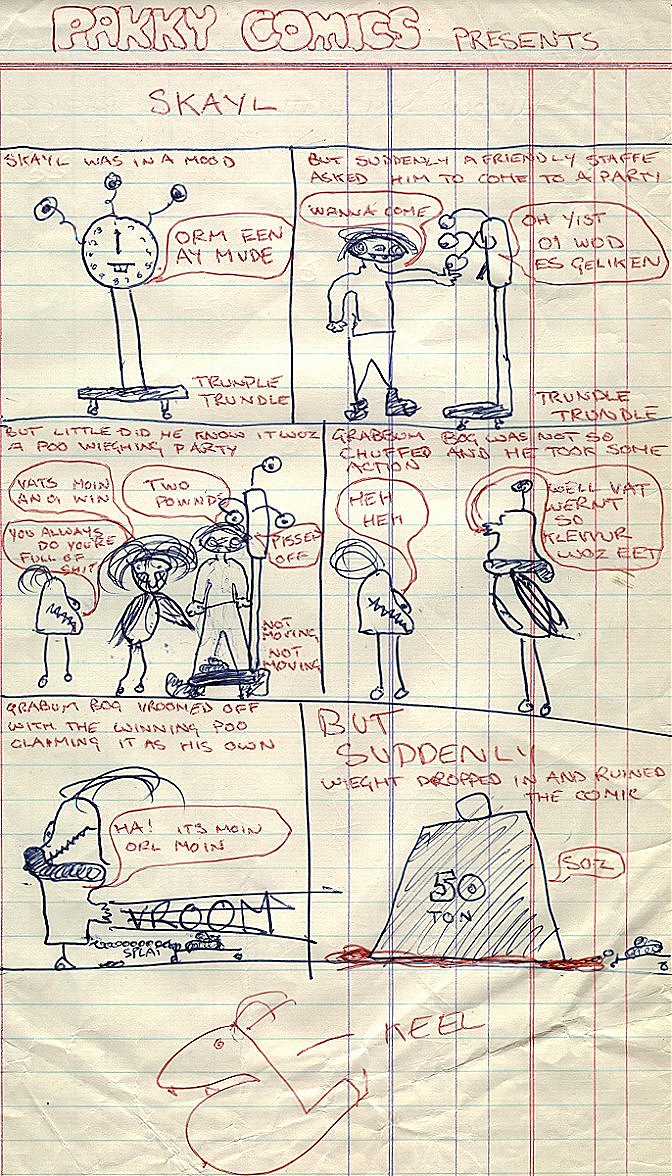 PAKKY COMICS PRESENTS
SKAYL
SKAYL WAS IN A MOOD
ORM EEN
AY MUDE
TRUNDLE
TRUNDLE
BUT SUDDENLY A FRIENDLY STAFFE
ASKED HIM TO COME TO A PARTY
WANNA COME
OH YIST
OI WOD
ES GELIKEN
TRUNDLE
TRUNDLE
BUT LITTLE DID HE KNOW IT WOZ
A POO WIEGHING PARTY
VATS MOIN
AN OI WIN
TWO
POWNDS
YOU ALWAYS
DO YOU'RE
FULL OF
SHIT
PISSED
OFF
NOT
MOVING
NOT
MOVING
GRABBUM BOG WAS NOT SO
CHUFFED AND HE TOOK SOME
ACTION
HEH
HEH
WELL VAT
WERNT
SO
KLEVVUR
WOZ EET
GRABUM BOG VROOMED OFF
WITH THE WINNING POO
CLAIMING IT AS HIS OWN
HA! IT'S MOIN
ORL MOIN
VROOM
SPLAT
BUT
SUDDENLY
WIEGHT DROPPED IN AND RUINED
THE COMIC
50
TON
SOZ
KEEL